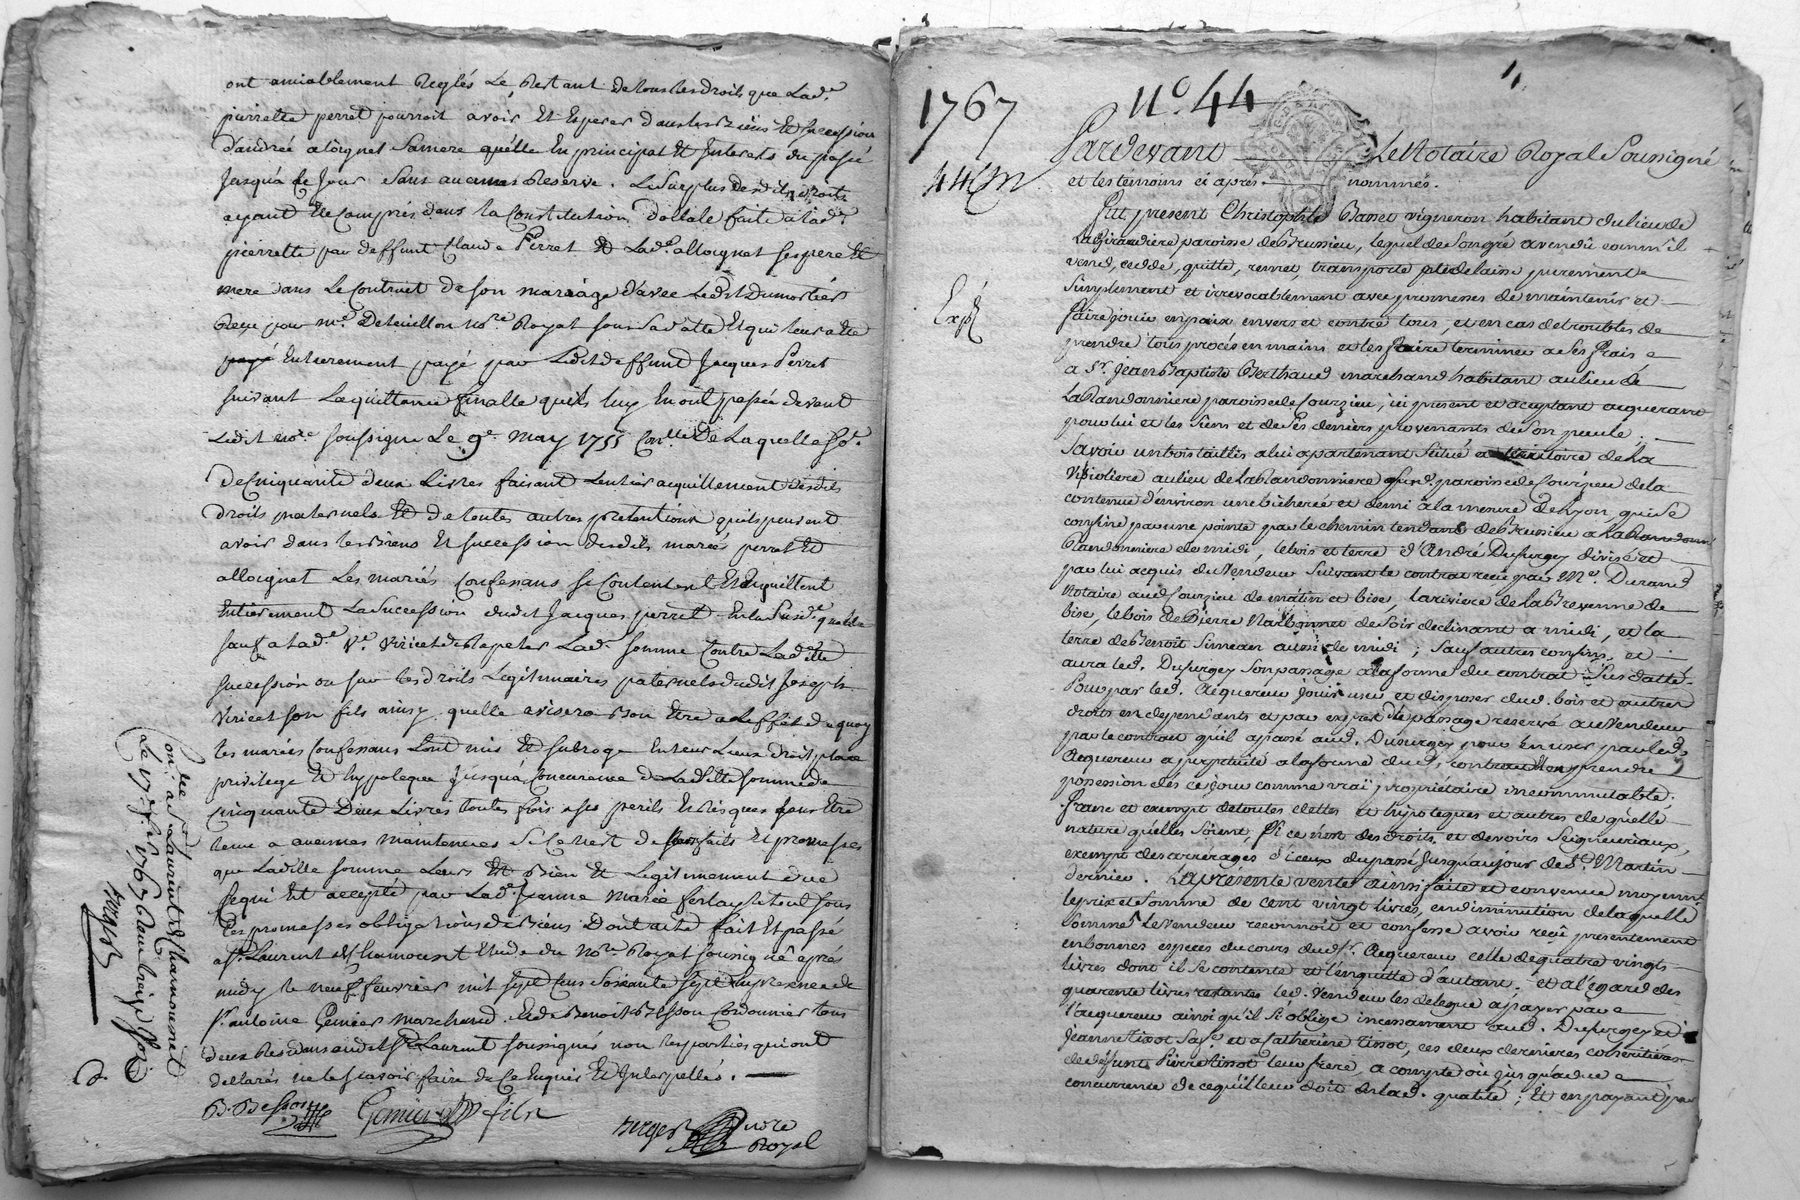 ont amiablement Reglés Le Restant detouslesdroits que Lad.e
pierrette perret pourroit avoir Et Esperer danslesBiens Et succession
d'andrée aloignet Samere quelle En principal Et Interets du passé
Jusquà ce Jour sans aucunes Reserve. Lesurplus desdits droits
ayant Eté Compris dans la Constitution dottale faite alad.e
pierrette par deffunt Claude Perret Et Lad.e alloignet ses pere Et
mere dans Le Contract de son mariage d'avec Ledit Dumortier
Reçu par m.e Deteuillon No.re Royal sous sadatte Et qui leur a Eté
payé Entierement payé par Ledit deffunt Jacques Perret
suivant Laquittance finalle quils luy En ont passée devant
Ledit no.re soussigné Le 9e may 1755 De Laquelle So.e
de Cinquante deux Livres faisant Lentier acquittement desdits
droits maternels Et de toutes autres pretentions quils peuvent
avoir dans lesBiens Et succession desdits mariés perret Et
alloignet Les mariés Confessans se Contentent Et Enquittent
Entierement La succession dudit Jacques perret
sauf a Lad.e V.e Viricet de Repeter Lad. somme Contre Ladite
succession ou sur les droits Legitimaires paternels dudit Joseph
Viricet son fils ainsy quelle avisera Bon Etre a L'effet de quoy
les mariés Confessans L'ont mis Et subrogé En leur Lieux droit place
privilege Et hypoteque Jusquà Concurence de Ladite Somme de
Cinquante Deux Livres toutes fois a ses perils Et risques sans Etre
tenu a aucunes maintenues si Ce n'est de leurs faits Et promesses
que Ladite somme Leurs Est Bien Et Legitimement due
Cequi Est accepté par Lad.e Jeanne Marie ferlay Letout sous
Les promesses obligations deBiens Dont acte fait Et passé
a St. Laurent de Chamousset Etude du No.re Royal soussigné après
midy le neuf feuvrier mil sept Cens Soixante sept En presence de
Sr. antoine Genier Marchand Et de Benoit Besson Cordonnier tous
deux Residens audit St. Laurent soussignés non les parties qui ont
declarés ne le scavoir faire de Ce Enquis Et Interpellés.
B. Besson Genier fils Berger no.re Royal
Con.lé a St. Laurent de Chamousset
Le 17e f.er 1767
Berger
1767 n.o 44
44
Pardevant Le Notaire Royal Soussigné
et les temoins ci apres nommés.
Fut present Christophle Basset vigneron habitant du lieu de
La Giraudiere paroisse de Brussieu, lequel de son gré a vendu comm'il
vend, cedde, quitte, remet, transporte et delaisse purement e
Simplement et irrevocablement avec promesses de maintenir et
faire jouir en paix envers et contre tous, et en cas de troubles de
prendre tous procés en mains et les faire terminer a ses frais e
Expé
a Sr. jean Baptiste Berthaud marchand habitant au lieu de
La Randonniere paroisse de Sourzieu, ici present et aceptant acquerant
pour lui et les siens et de ses deniers provenants de son pecule;
Savoir un bois taillis a lui apartenant Scitué au territoire de la
Violiere au lieu de La Randonniere susd. paroisse de Sourzieu de la
contenue d'environ une bicherée et demi à la mesure de Lyon, qui se
confine par une pointe par le chemin tendant de Brussieu a
Randonniere de midi, le bois et terre d'André Dusurgey divisé et
par lui acquis du Vendeur suivant le contrat reçu par Me. Durand
Notaire aud. Sourzieu de matin et bise, la riviere de La Brevenne de
bise, le bois de Pierre Narbonnet de soir declinant a midi, et la
terre de Benoit Simean aussi de midi; Sauf autres confins, et
aura led. Dusurgey son passage a la forme du contrat sus datté.
Pour par led. Acquereur jouir user et disposer dud. bois et autres
droits en dependants et par exprés du passage reservé au vendeur
par le contrat qu'il a passé aud. Dusurgey pour en user par led.
Acquereur a perpetuité a la forme dud. contrat
possession dés ce jour comme vrai proprietaire incommutable,
franc et exempt de toutes dettes et hypoteques et autres de quelle
nature qu'elles soient, si ce n'est des droits et devoirs Seigneuriaux,
exempt des arrerages d'iceux du passé jusqu'au jour de St. Martin
dernier. La présente vente ainsi faite et convenue moyenant
le prix et Somme de Cent vingt livres, en diminution de laquelle
Somme le Vendeur reconnoit et confesse avoir reçu presentement
en bonnes especes du cours dud. Sr. Acquereur celle de quatre vingts
livres dont il se contente et l'en quitte d'autant. et a l'egard des
quarente livres restantes led. Vendeur les delegue a payer par e
l'acquereur ainsi qu'il s'oblige incessament aud. Dusurgey et
Jeanne tissot Sa et a Catherine tissot, ces deux dernieres coheritieres
de defunt Pierre tissot leur frere, a compte ou jusqu'a due e
concurrente de ce qu'il leur doit en lad. qualité; Et en payant par